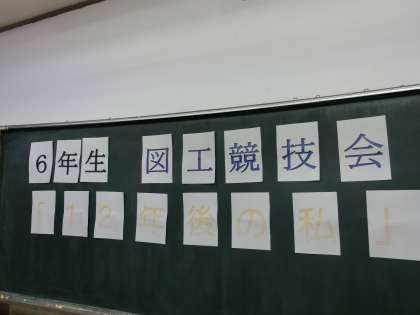 6年生 図工競技会
「12年後の私」